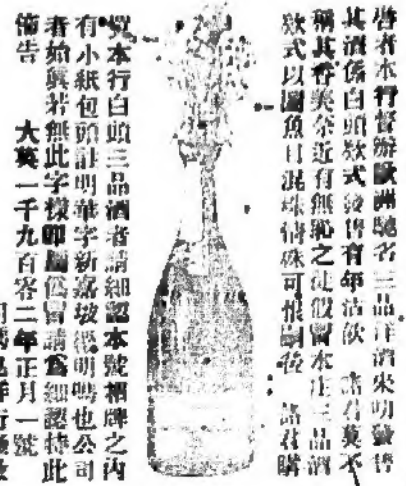 啓者本行督辦歐洲馳名三品洋酒來叻發售
其酒係白頭欵式發售有年沽飲 諸君莫不
稱其香美奈近有無恥之徒假冒本庄三品酒
欵式以圖魚目混珠情殊可恨嗣後 諸君購
買本行白頭三品酒者請細認本號招牌之內
有小紙包頭註明華字新嘉坡 明嗎也公司
者始眞若無此字樣卽屬僞冒請爲細認特此
佈告 大英一千九百零二年正月一號